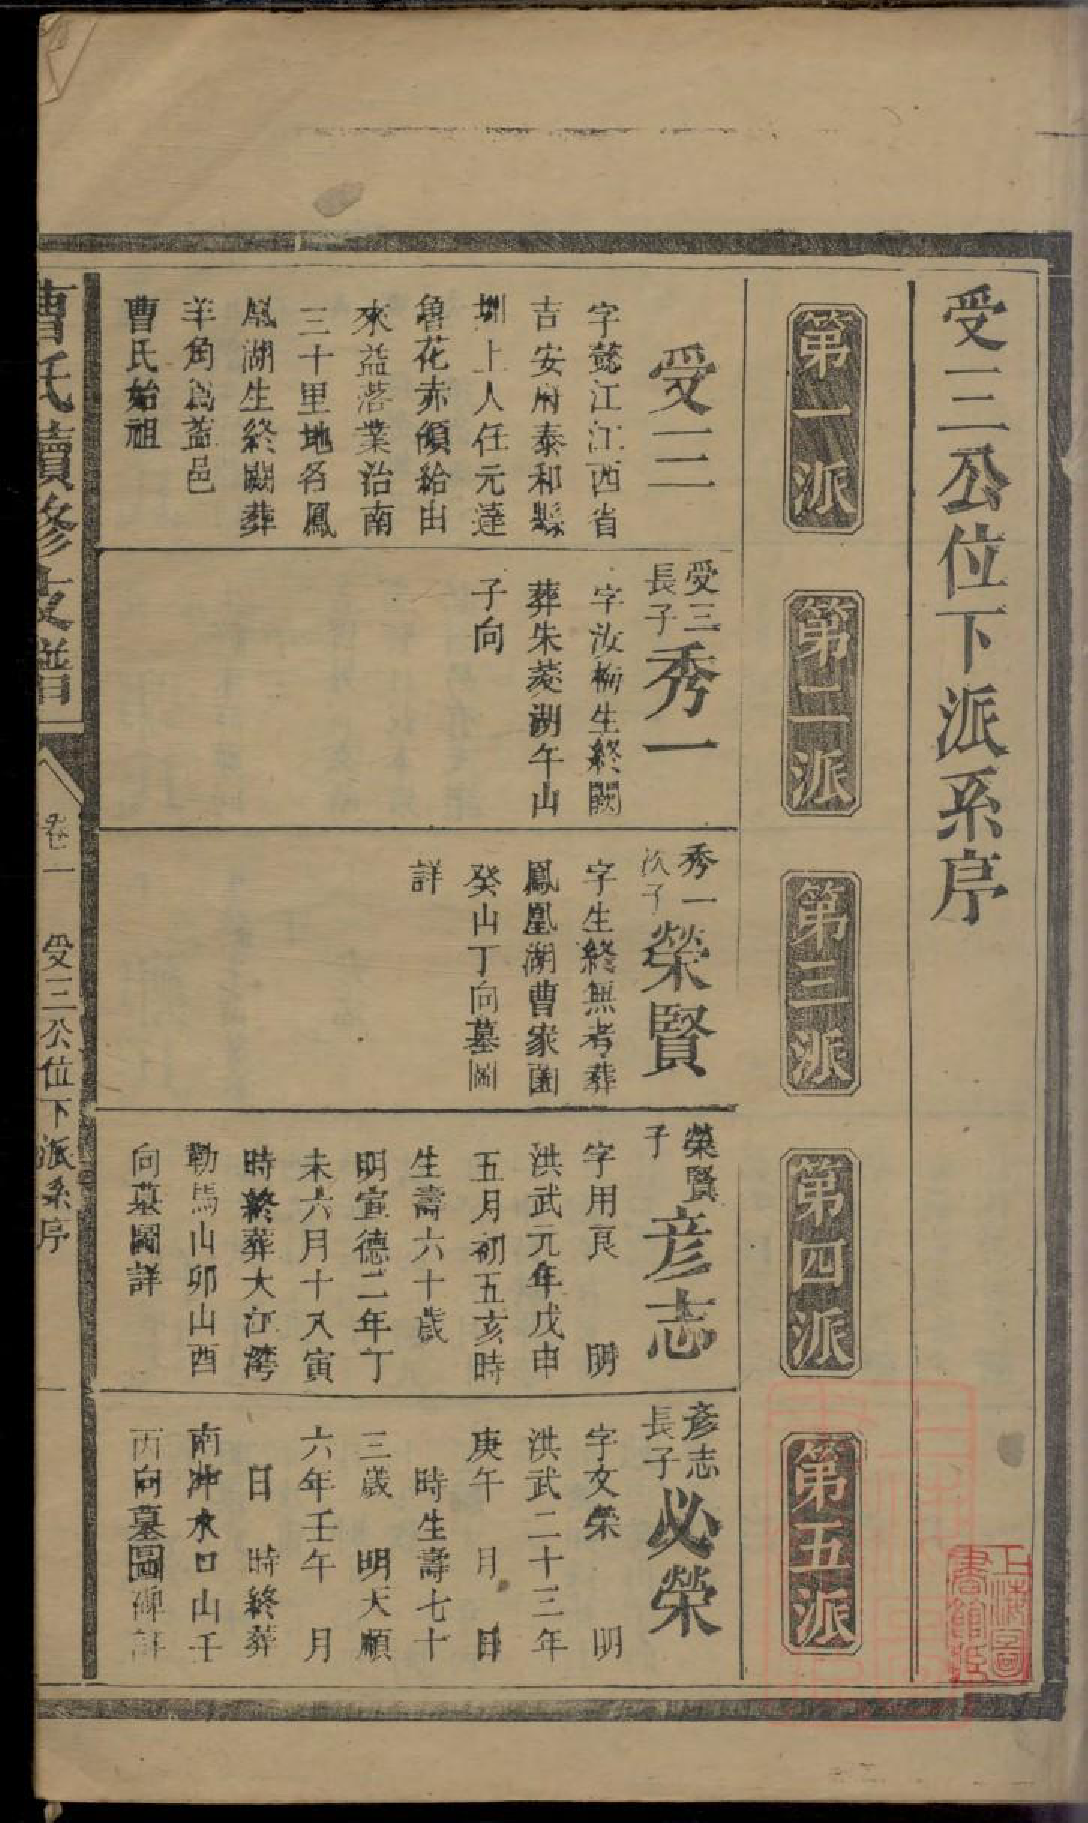 受三公位下派系序
第一派
第二派
第三派
第四派
第五派
受三
字懿江江西省
吉安府泰和縣
圳上人任元達
魯花赤領給由
來益落業治南
三十里地名鳳
凰湖生終闕葬
羊角爲益邑
曹氏始祖
受三
長子
秀一
字汝楠生終闕
葬朱菱湖午山
子向
秀一
次子
榮賢
字生終無考葬
鳳凰湖曹家園
癸山丁向墓圖
詳
榮賢
子
彦志
字用良 明
洪武元年戊申
五月初五亥時
生壽六十歲
明宣德二年丁
未六月十八寅
時終葬大江灣
勒馬山卯山酉
向墓圖詳
彥志
長子
必榮
字文榮 明
洪武二十三年
庚午 月 日
時生壽七十
三歲 明天順
六年壬午 月
日 時終葬
南冲水口山千
西向墓圖碑詳
曹氏續修支譜
卷一 受三公位下派系序
上海圖
書館藏